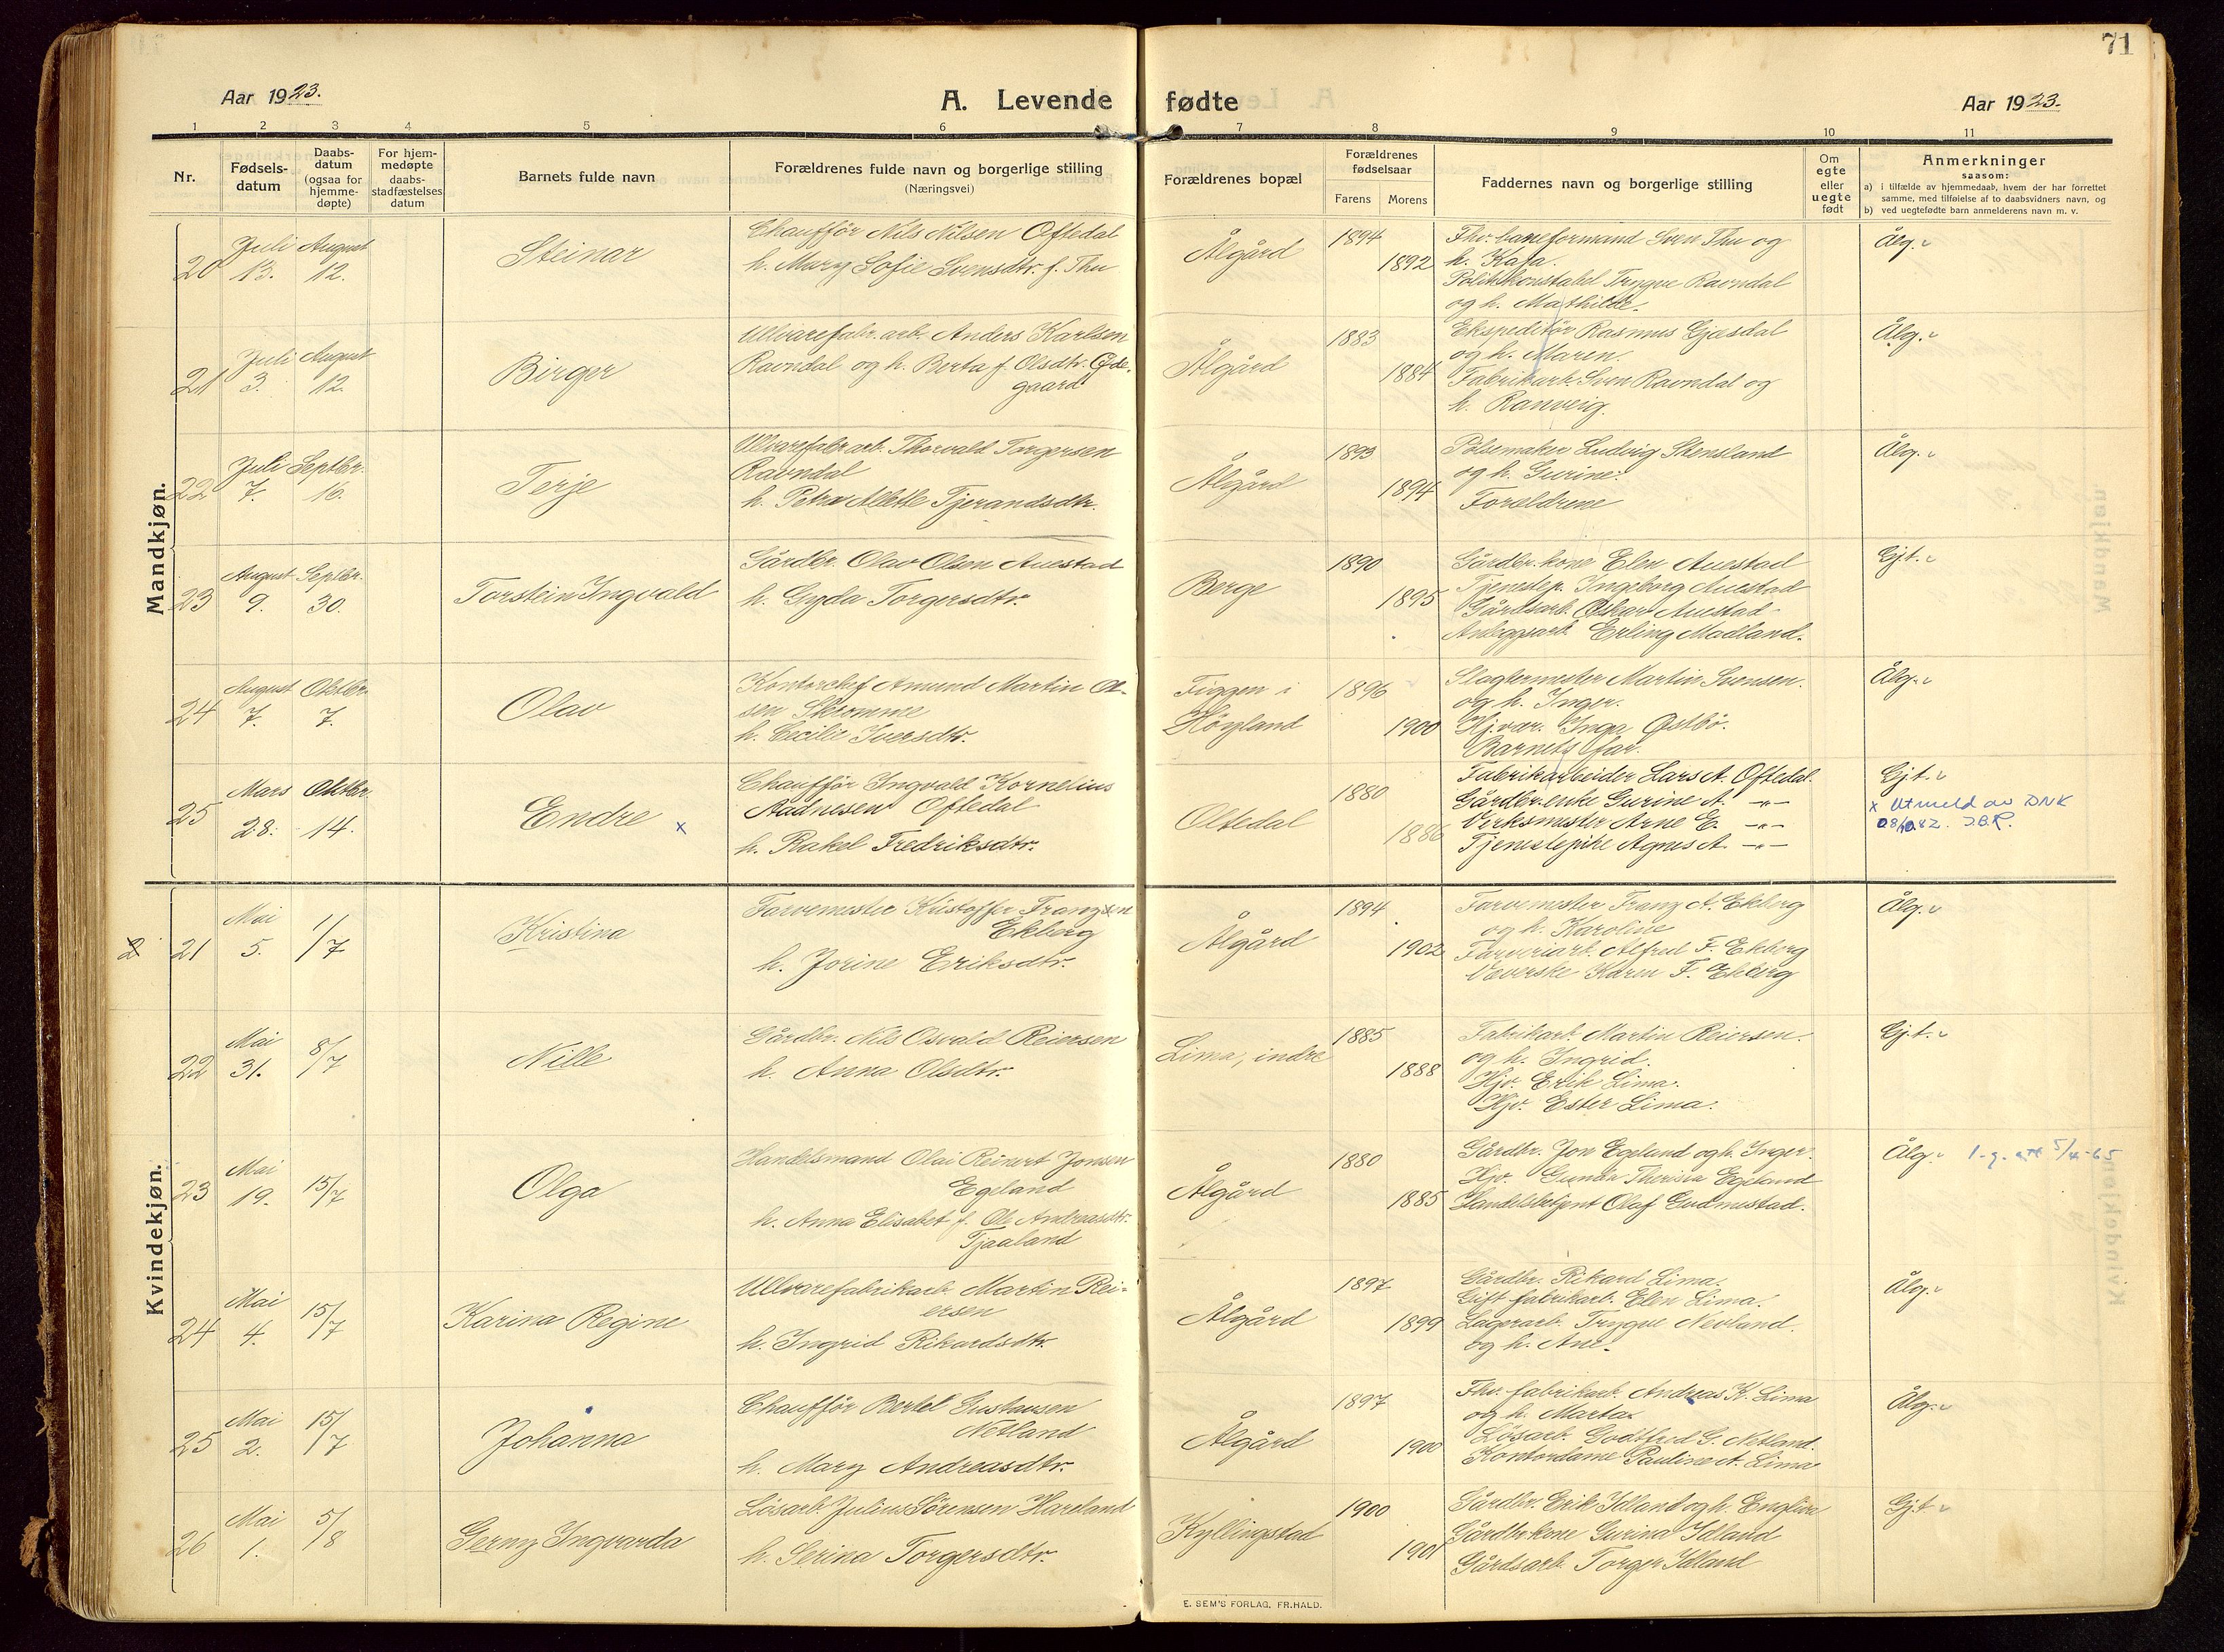 71
Aar 1923.
A. Levende fødte
Aar 1923.
1 2 3 4 5 6 7 8 9 10 11
Nr.
Fødsels-
datum
Daabs-
datum
(ogsaa for
hjemme-
døpte)
For hjem-
medøpte
daabs-
stadfæstelses
datum
Barnets fulde navn
Forældrenes fulde navn og borgerlige stilling
(Næringsvei)
Forældrenes bopæl
Forældrenes
fødselsaar
Farens Morens
Faddernes navn og borgerlige stilling
Om
egte
eller
uegte
født
Anmerkninger
saasom:
a) i tilfælde av hjemmedaab, hvem der har forrettet
samme, med tilføielse af to daabsvidners navn, og
b) ved uegtefødte barn anmelderens navn m. v.
Mandkjøn.
20
Juli
13.
August
12.
Steinar
Chauffør Nils Nilsen Oftedal
h. Mary Sofie Svensdtr. f. Thu
Ålgård
1894
1892
Fhv. baneformand Sven Thu og
h. Kaja.
Politikonstabel Trygve Ravndal
og h. Mathilde.
Ålg.
21
Juli
3.
August
12.
Birger
Ullvarefabr. arb. Anders Karlsen
Ravndal og h. Berta f. Olsdtr. Øde-
gaard
Ålgård
1883
1884
Ekspeditør Rasmus Gjesdal
og h. Maren.
Fabrikarb. Sven Ravndal og
h. Ranveig.
Ålg.
22
Juli
7.
Septbr.
16.
Terje
Ullvarefabr. arb. Thorvald Torgersen
Ravndal
h. Petra Alette Tjerandsdtr.
Ålgård
1893
1894
Pølsemaker Ludvig Stensland
og h. Gurine.
Forældrene
Ålg.
23
August
9.
Septbr.
30.
Torstein Ingvald
Gårdbr. Olav Olsen Auestad
h. Gyda Torgersdtr.
Berge
1890
1895
Gårdbr. kone Elen Auestad
Tjenestep. Ingeborg Auestad
Gårdsarb. Oskar Auestad
Anleggsarb. Erling Madland.
Gjt.
24
August
7.
Oktbr.
7.
Olav
Kontorchef Amund Martin Ol-
sen Skromme
h. Cecilie Iversdtr.
Figgen i
Høyland
1896
1900
Slagtermester Martin Svensen.
og h. Inger.
Hj.vær. Inga Østbø.
Barnets far.
Ålg.
25
Mars
28.
Oktbr.
14.
Endre x
Chauffør Ingvald Kornelius
Aadnesen Oftedal
h. Rakel Fredriksdtr.
Oltedal
1880
1886
Fabrikarbeider Lars A. Oftedal.
Gårdbr. enke Gurine A. —"—
Verksmester Arne E. —"—
Tjenestepike Agnes A. —"—
Gjt.
x Utmeld av DNK
08/10.82. J.B.R.
Kvindekjøn.
21
Mai
5.
1/7
Kristina
Farvemester Kristoffer Franzsen
Ekberg
h. Jorine Eriksdtr.
Ålgård
1894
1902
Farvemester Franz A. Ekberg
og h. Karoline
Farveriarb. Alfred F. Ekberg
Væverske Karen F. Ekberg
Ålg.
22
Mai
31.
8/7
Nille
Gårdbr. Nils Osvald Reiersen
h. Anna Olsdtr.
Lima, indre
1885
1888
Fabrikarb. Martin Reiersen.
og h. Ingrid.
Hjv. Erik Lima.
Hjv. Ester Lima.
Gjt.
23
Mai
19.
15/7
Olga
Handelsmand Olai Reinert Jonsen
Egeland
h. Anna Elisabet f. Ole Andreasdtr.
Tjaaland
Ålgård
1880
1885
Gårdbr. Jon Egeland og h. Inger.
Hjv. Gunda Therisia Egeland
Handelsbetjent Olaf Gudmestad.
Ålg.
24
Mai
4.
15/7
Karina Regine
Ullvarefabrikarb. Martin Rei-
ersen
h. Ingrid Rikardsdtr.
Ålgård
1897
1899
Gårdbr. Rikard Lima.
Gift fabrikarb. Elen Lima.
Lagerarb. Trygve Nevland.
og h. Ane.
Ålg.
25
Mai
2.
15/7
Johanna
Chauffør Bertel Gustavsen
Netland
h. Mary Andreasdtr.
Ålgård
1897
1900
Fhv. fabrikarb. Andreas K. Lima
og h. Marta.
Løsarb. Godtfred G. Netland.
Kontordame Pauline A. Lima
Ålg.
26
Mai
1.
5/8
Gerny Ingvarda
Løsarb. Julius Sørensen Hareland
h. Serina Torgersdtr.
Kyllingstad
1900
1901
Gårdbr. Erik Idland og h. Engline
Gårdbr. kone Gurina Idland
Gårdsarb. Torger Idland
Gjt.
E. SEM'S FORLAG, FR.HALD.